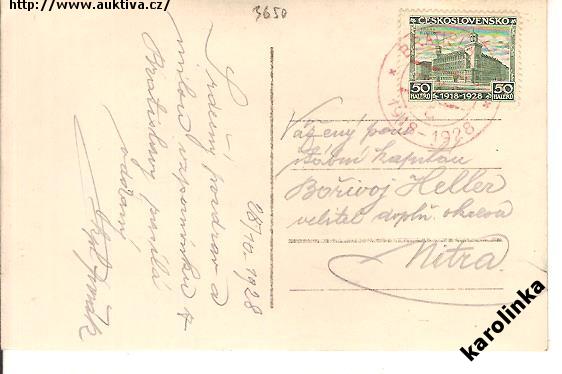 http://www.auktiva.cz/
3650
ČESKOSLOVENSKO
50 50
HALÉŘŮ 1918-1928 HALÉŘŮ
1918-1928
Srdečný pozdrav a
milou vzpomínku z
Bratislavy posílá
oddaný
28/10. 1928
Vážený pan
štábní kapitán
Bořivoj Heller
velitel doplň. okresu
Nitra.
karolinka